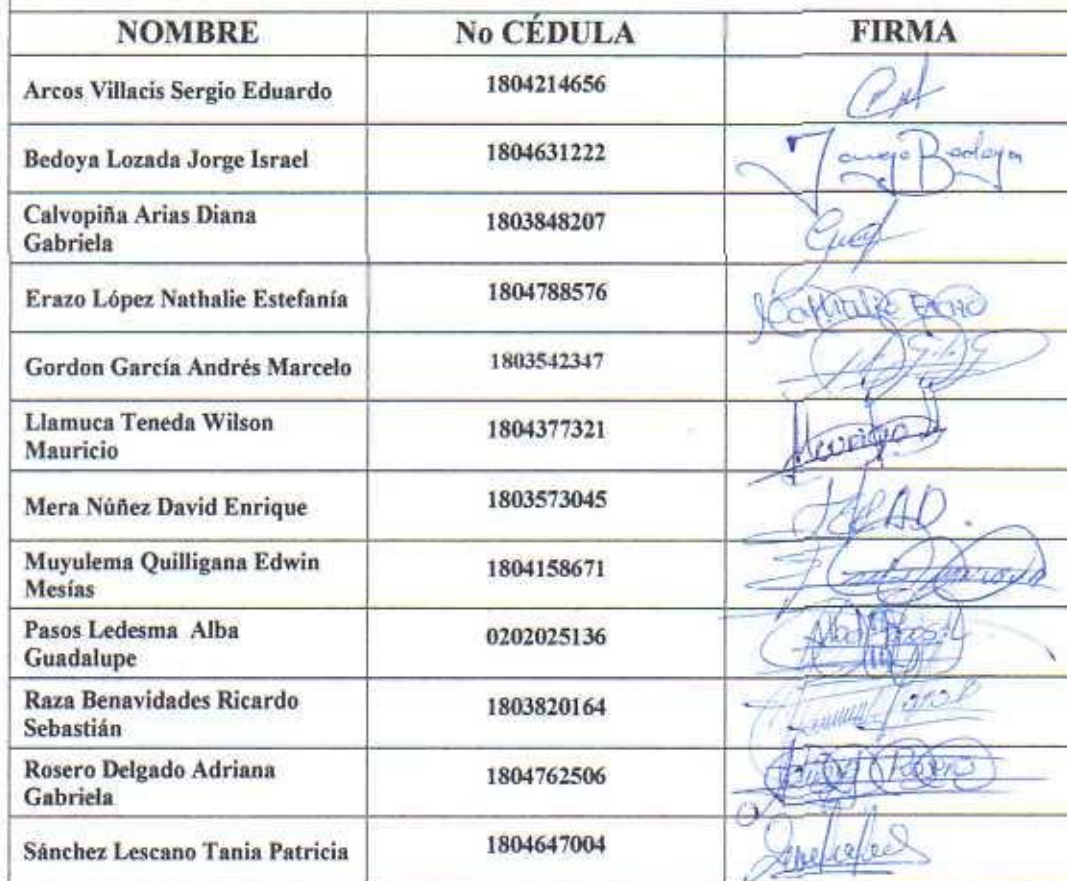 NOMBRE No CÉDULA FIRMA
Arcos Villacis Sergio Eduardo 1804214656
Bedoya Lozada Jorge Israel 1804631222
Calvopiña Arias Diana
Gabriela 1803848207
Erazo López Nathalie Estefanía 1804788576
Gordon García Andrés Marcelo 1803542347
Llamuca Teneda Wilson
Mauricio 1804377321
Mera Núñez David Enrique 1803573045
Muyulema Quilligana Edwin
Mesías 1804158671
Pasos Ledesma Alba
Guadalupe 0202025136
Raza Benavidades Ricardo
Sebastián 1803820164
Rosero Delgado Adriana
Gabriela 1804762506
Sánchez Lescano Tania Patricia 1804647004